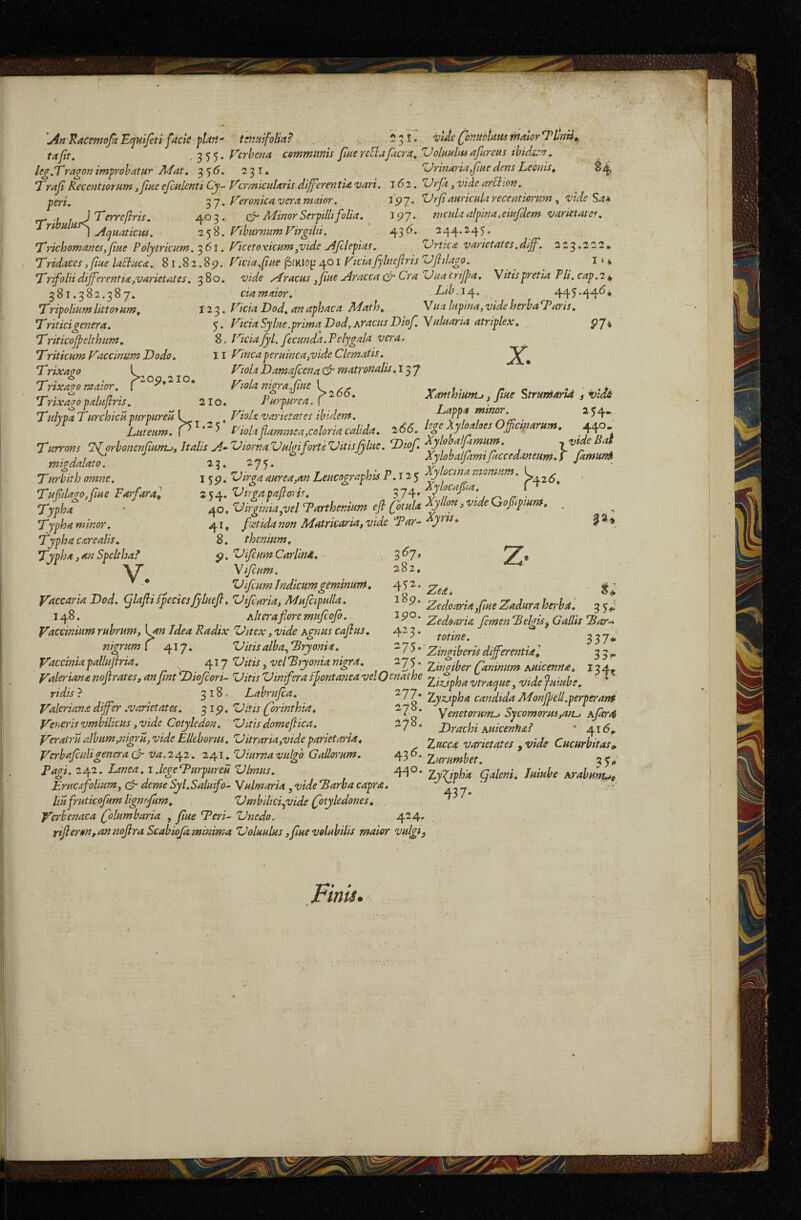 An Racemosa Equiseti facie plan-
ta sit. 355.
leg. Tragon improbatur Mat. 356.
Trasi Recentiorum, siue esculenti Cy-
peri. 37.
Tribulus { Terrestris. 403.
Aquaticus. 258.
Trichomanes, siue Polytricum. 361.
Tridaces, siue lactucæ. 81.82.89.
Trifolii differentiæ, varietates. 380.
381.382.387.
Tripolium littorum. 123.
Tritici genera. 5.
Triticospelthum. 8.
Triticum Vaccinum Dodo. 11
Trixago
Trixago maior. } 209.210.
Trixago palustris. 210.
Tulypa Turchicū purpureū
Luteum. } 51.25
Turrons Norbonensium, Italis A-
migdalato. 23.
Turbith omne. 159.
Tussilago, siue Farfara. 254.
Typha 40.
Typha minor. 41.
Typha cærealis. 8.
Typha, an Speltha? 9.
V.
Vaccaria Dod. Glasti species sylvest.
148.
Vaccinium rubrum, } an Idea Radix
nigrum 417.
Vaccinia pallustria. 417
Valerianæ nostrates, an sint Dioscori-
ridis? 318.
Valerianæ differ. varietates. 319.
Veneris vmbilicus, vide Cotyledon.
Veratrū album, nigrū, vide Elleborus.
Verbasculi genera & va. 242. 241.
Pagi. 242. Lanea. 1. lege Purpureū
Erucæfolium, & deme Syl. Saluifo-
liū fruticosum lignosum.
Verbenaca Columbaria, siue Peri-
risteron, an nostra Scabiosa minima
tenuifolia? 231.
Verbena communis siue recta sacra.
231.
Vermicularis differentiæ vari. 162.
Veronica vera maior. 197.
& Minor Serpilli folia. 197.
Viburnum Virgilii. 436.
Vicetoxicum, vide Asclepias.
Vicia, siue βίκιον 401 Vicia syluestris
vide Aracus, siue Aracca & Cra
cia maior.
Vicia Dod. an aphaca Math.
Vicia Sylue. prima Dod. Aracus Diosc.
Vicia syl. secunda. Polygala vera.
Vinca peruinca, vide Clematis.
Viola Damascena & matronalis. 137
Viola nigra, siue
Purpurea. } 266.
Viola varietates ibidem.
Viola flammea, coloria calida. 266.
Viorna Vulgi forte Vitis sylue. Diosc.
275.
Virga aurea, an Leucographis P. 125
Virga pastoris. 374.
Virginia, vel Parthenium est Cotula
fœtida non Matricaria, vide Par-
thenium.
Viscum Carlinæ. 367.
Viscum. 282.
Viscum Indicum geminum. 452.
Viscaria, Muscipulla. 189.
Altera flore muscoso. 190.
Vitex, vide Agnus castus. 423.
Vitis alba, Bryonia. 275.
Vitis, vel Bryonia nigra. 275.
Vitis Vinifera spontanea vel Oenāthe
Labrusca. 277.
Vitis Corinthia. 278.
Vitis domestica. 278.
Vitraria, vide parietaria.
Viurna vulgò Gallorum. 436.
Vlmus. 440.
Vulmaria, vide Barba capræ.
Vmbilici, vide Cotyledones.
Vnedo. 424.
Voluulus, siue volubilis maior vulgi,
vide Conuoluulus maior Plinii.
Voluulus asureus ibidem.
Vrinaria, siue dens Leonis. 84.
Vrsa, vide arction.
Vrsi auricula recentiorum, vide Sa-
nicula alpina, eiusdem varietates.
244.245.
Vrtica varietates. diff. 223.222.
Vstilago. 11.
Vua crispa. Vitis pretia Pli. cap. 2.
Lib. 14. 445.446.
Vua lupina, vide herba Paris.
Vuluaria atriplex. 97.
X.
Xanthium, siue Strumaria, vide
Lappa minor. 254.
lege Xyloaloes Officinarum. 440.
Xylobalsamum. } vide Bal
Xylobalsami succedaneum. samum
Xylocina momum.
Xylocassia. } 426.
Xyllon, vide Gossipium.
Xyris.
Z.
Zea. 8.
Zedoaria, siue Zadura herba. 35.
Zedoaria semen Belgis, Gallis Bar-
totine. 337.
Zingiberis differentia. 33
Zingiber Caninum Auicennæ. 134.
Zizipha vtraque, vide Juiubæ.
Zyzipha candida Monspell. perperam
Venetorum, Sycomorus, an Asara
Drachi Auicennæ? 416.
Zuccæ varietates, vide Cucurbitas.
Zurumbet. 35.
Zyzipha Galeni. Iuiube Arabum.
437.
Finis.